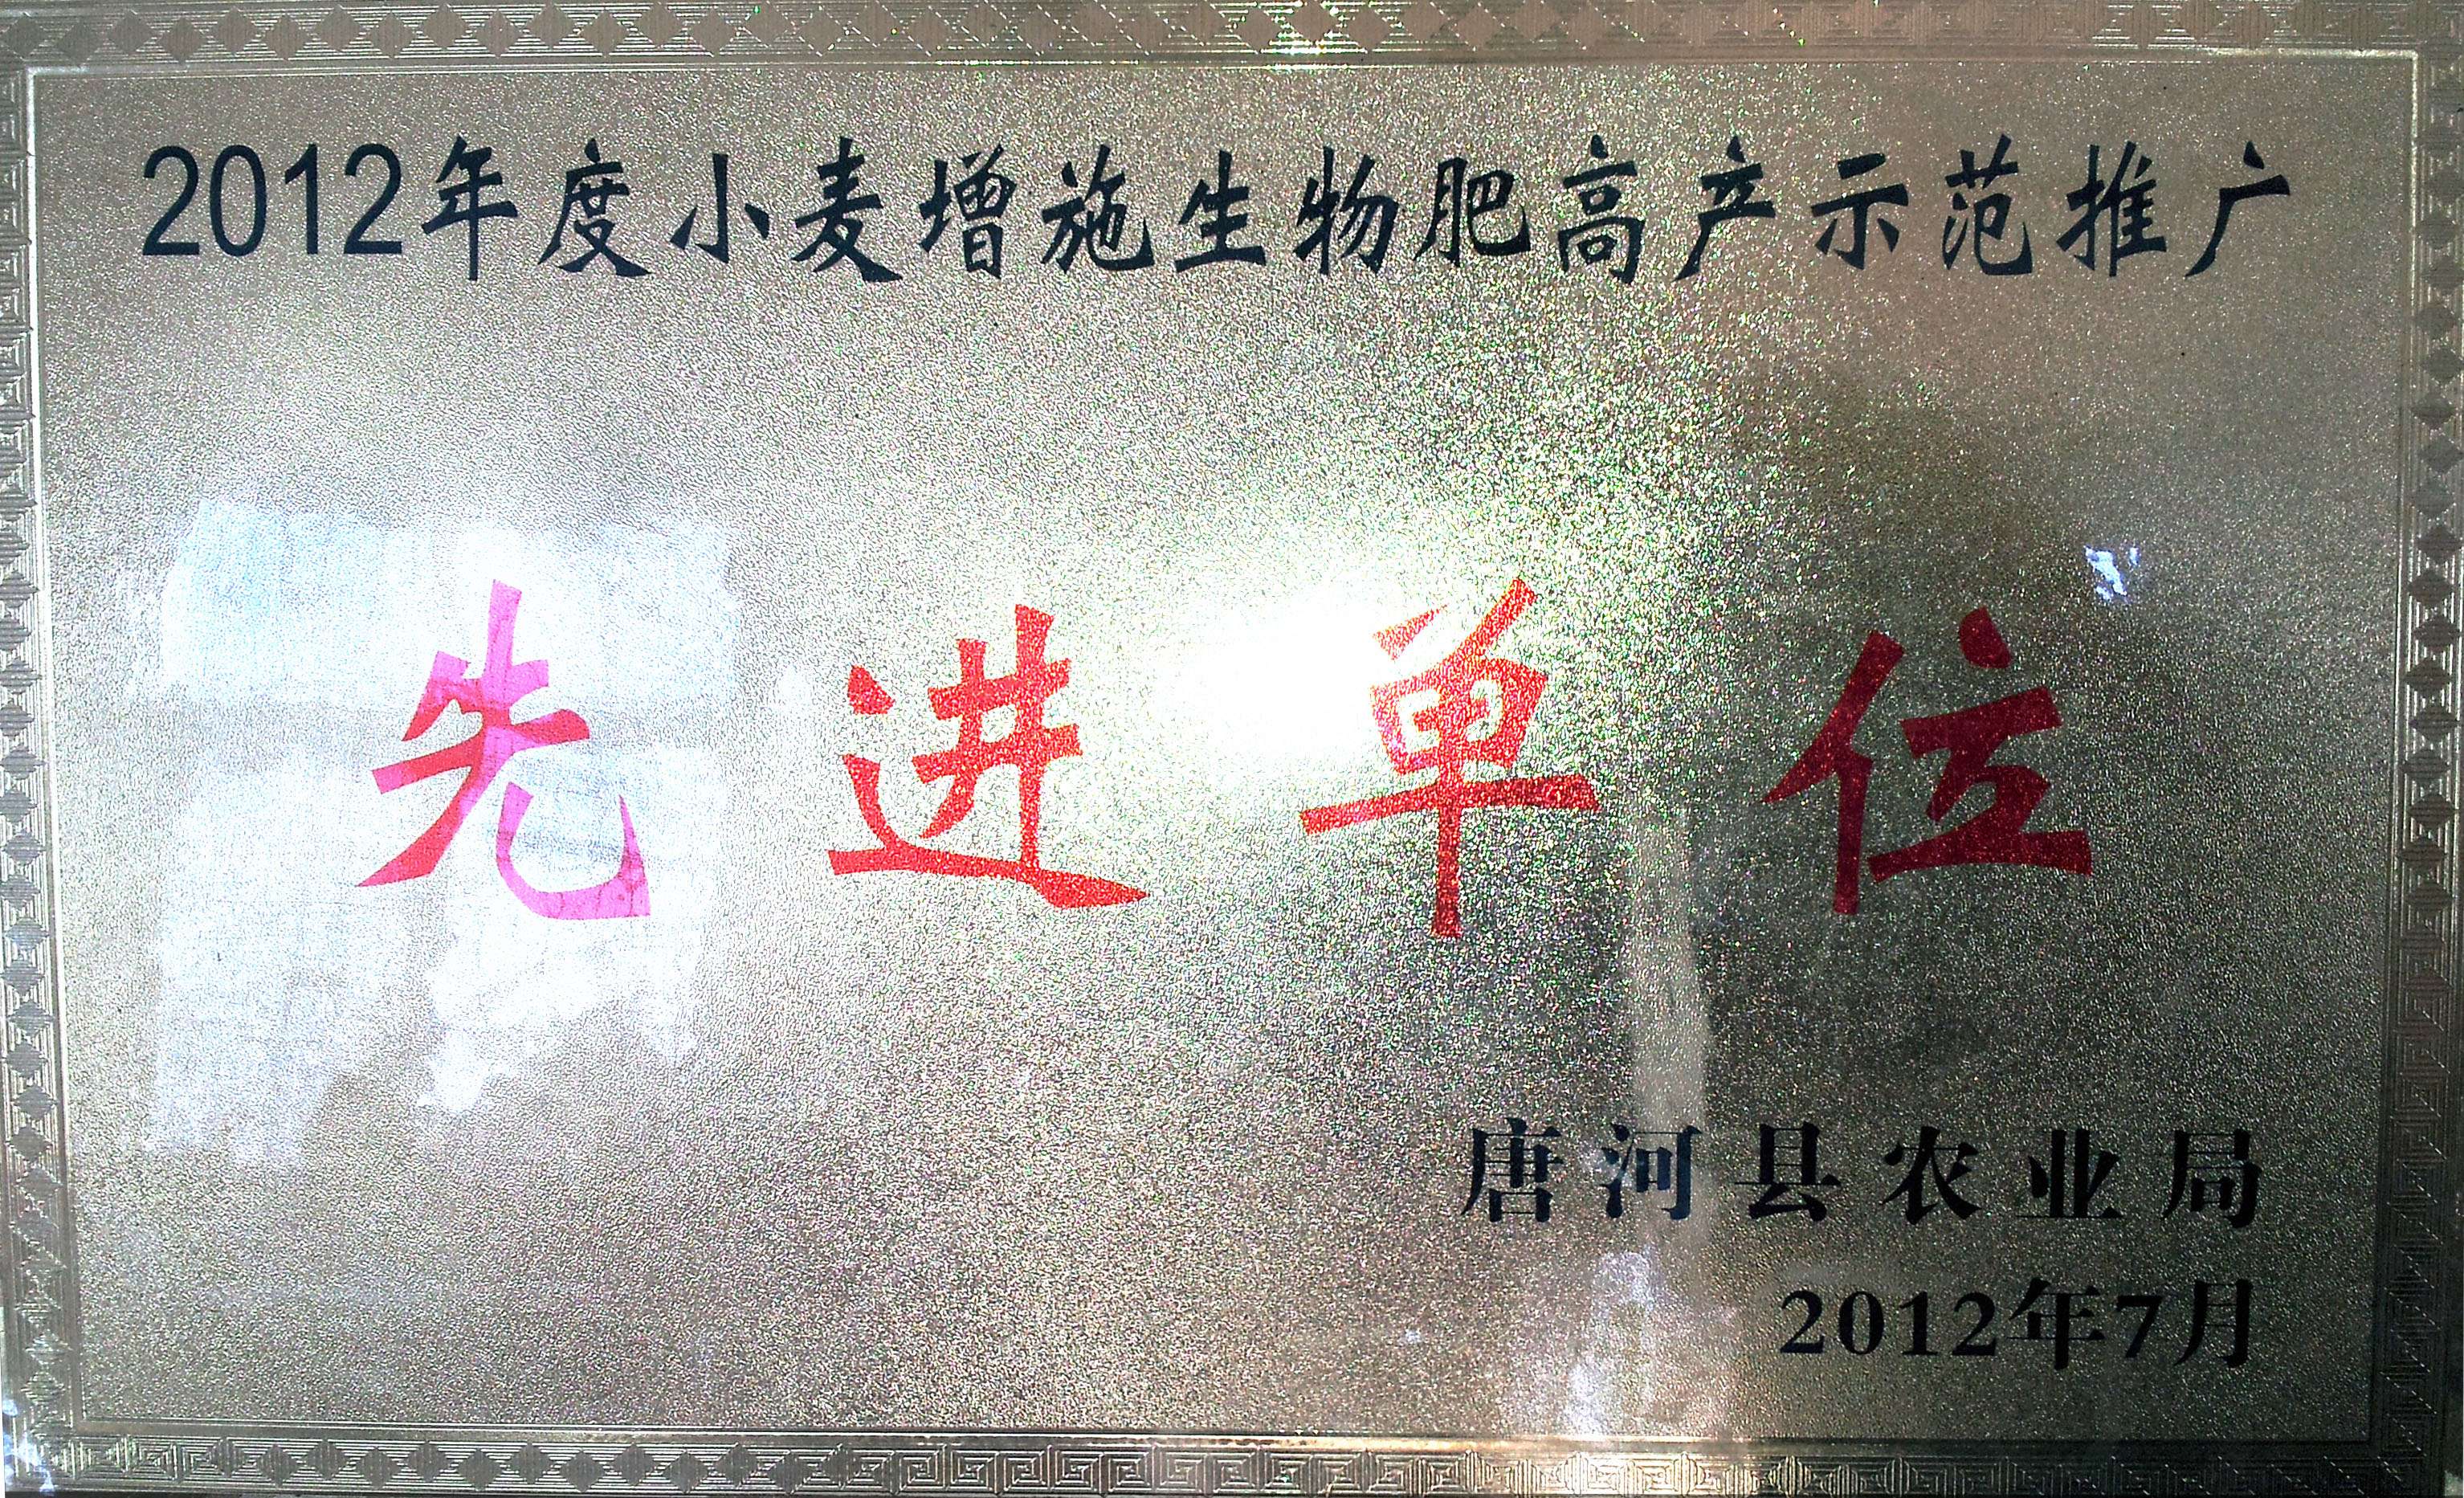 2012年度小麦增施生物肥高产示范推广
先进单位
唐河县农业局
2012年7月